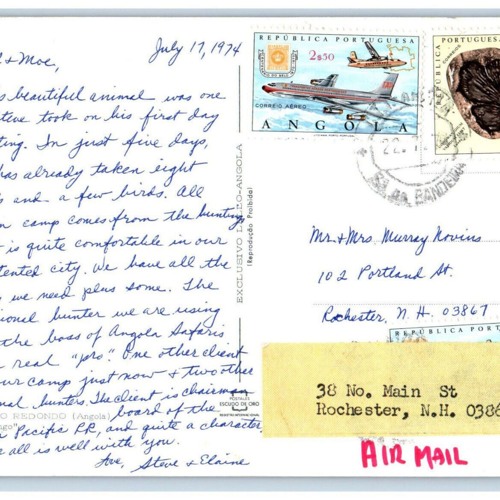 July 17, 1974
& Moe,
s beautiful animal was one
teve took on his first day
ting. In just five days,
has already taken eight
s and a few birds. All
n camp comes from the hunting,
t is quite comfortable in our
tented city. We have all the
we need plus some. The
ional hunter we are using
the boss of Angola Safaris
real "pro" One other client
our camp just now & two other
ional hunters. The client is chairman
board of the
n Pacific RR, and quite a character
all is well with you.
Love, Steve & Elaine
O REDONDO (Angola)
ngo"
EXCLUSIVO LELLO-ANGOLA
(Reprodução Proibida)
POSTALES
ESCUDO DE ORO
REPÚBLICA PORTUGUESA
2$50
CORREIO AÉREO
ANGOLA
REPÚBLICA PORTUGUESA
SÁ DA BANDEIRA
Mr. & Mrs. Murray Novins
102 Portland St.
Rochester, N.H. 03867
38 No. Main St
Rochester, N.H. 0386
AIR MAIL